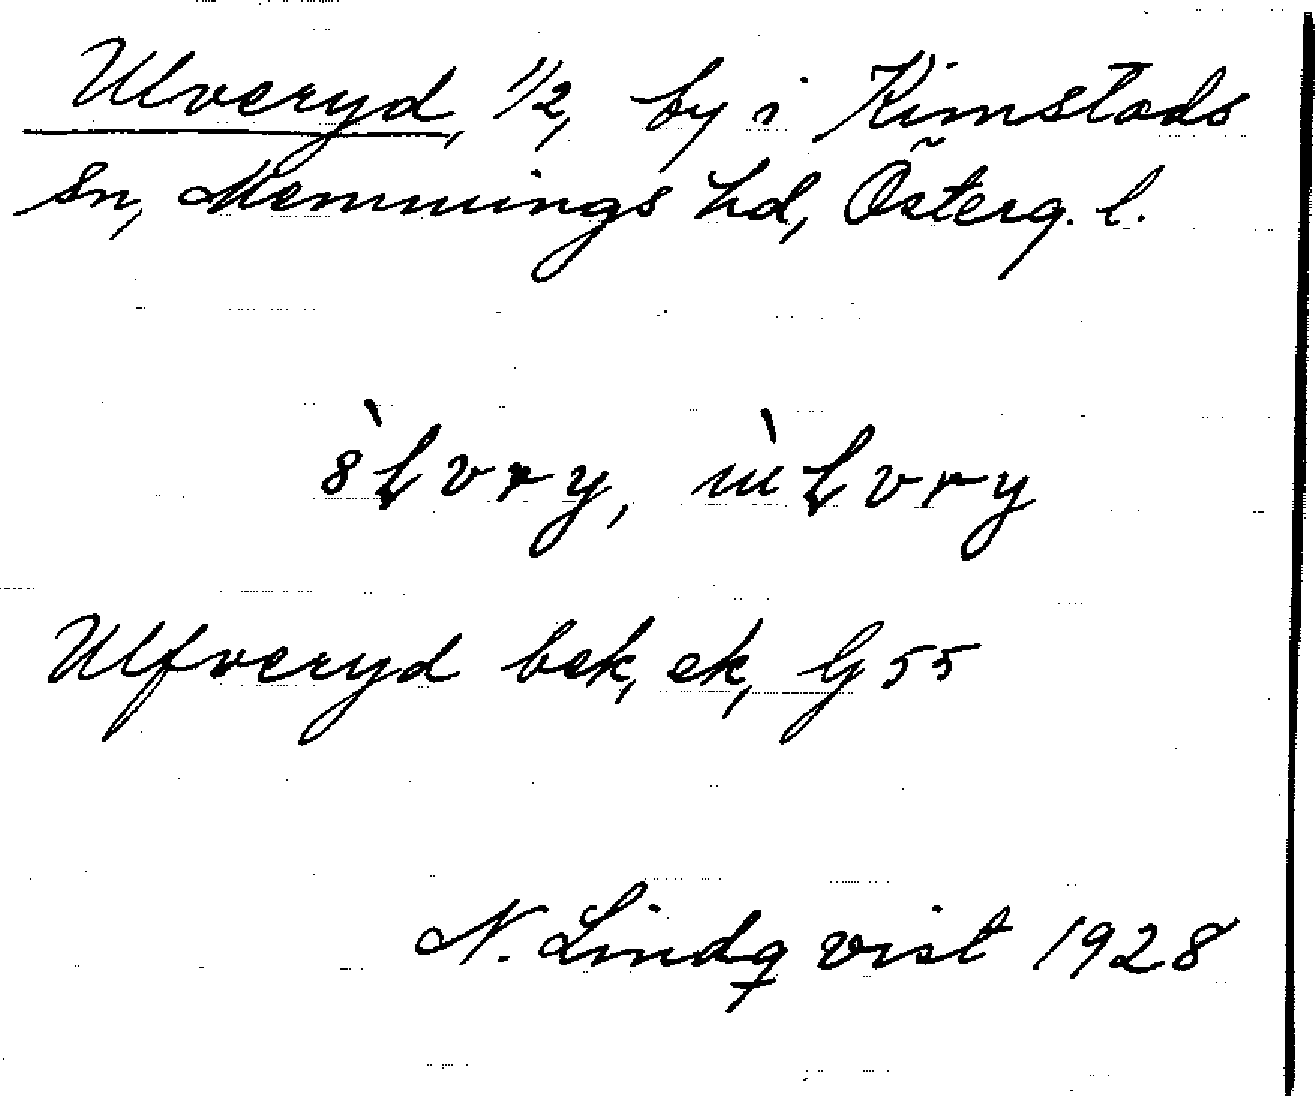 Ulveryd, 1/2, by i Kimstads
sn, Memmings hd, Österg. l.
8̀Lvry, ɯ̀Lvry
Ulfveryd bek, ek, G 55
N. Lindqvist 1928